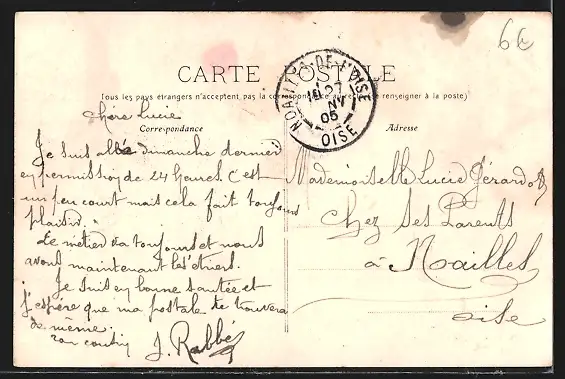 6€
CARTE POSTALE
Tous les pays étrangers n'acceptent pas la correspondance au recto (se renseigner à la poste)
NOAILLES-DE-L'OISE
18 27
NV
05
OISE
Correspondance
Adresse
chère Lucie
Je suis allé dimanche dernier
en permission de 24 heures c'est
un peu court mais cela fait toujours
plaisir.
Le métier va toujours et nous
avons maintenant les étriers.
Je suis en bonne santée et
j'espére que ma postale te trouvera
de même.
ton cousin J. Rabbé
Mademoiselle Lucie Gérardot
Chez Ses Parents
à Noailles
oise